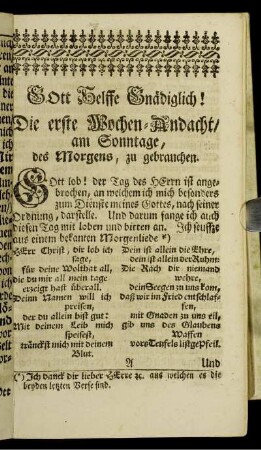 GOtt Helffe Gnädiglich!
Die erste Wochen-Andacht/
am Sonntage,
des Morgens, zu gebrauchen.
GOtt lob! der Tag des HErrn ist ange-
brochen, an welchem ich mich besonders
zum Dienste meines Gottes, nach seiner
Ordnung, darstelle. Und darum fange ich auch
diesen Tag mit loben und bitten an. Ich seuffze
aus einem bekanten Morgenliede *)
HErr Christ, dir lob ich
sage,
für deine Wolthat all,
die du mir all mein tage
erzeigt hast überall.
Deinn Namen will ich
preisen,
der du allein bist gut:
Mit deinem Leib mich
speisest,
tränckst mich mit deinem
Blut.
Dein ist allein die Ehre,
dein ist allein der Ruhm:
Die Rach dir niemand
wehre,
dein Seegen zu uns kom,
daß wir im Fried entschlaf-
fen,
mit Gnaden zu uns eil,
gib uns des Glaubens
Waffen
vors Teufels listge Pfeil.
A Und
(*) Ich danck dir lieber HErre ꝛc. aus welchen es die
beyden letzten Verse sind.